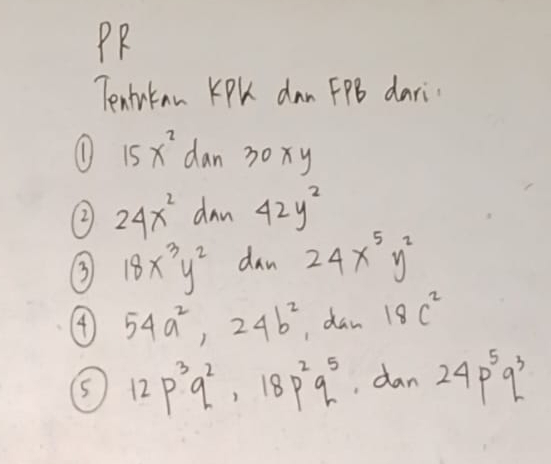 PR
Tentukan KPK dan FPB dari:
① 15x² dan 30xy
② 24x² dan 42y²
③ 18x³y² dan 24x⁵y²
④ 54a², 24b², dan 18c²
⑤ 12p³q², 18p²q⁵, dan 24p⁵q³